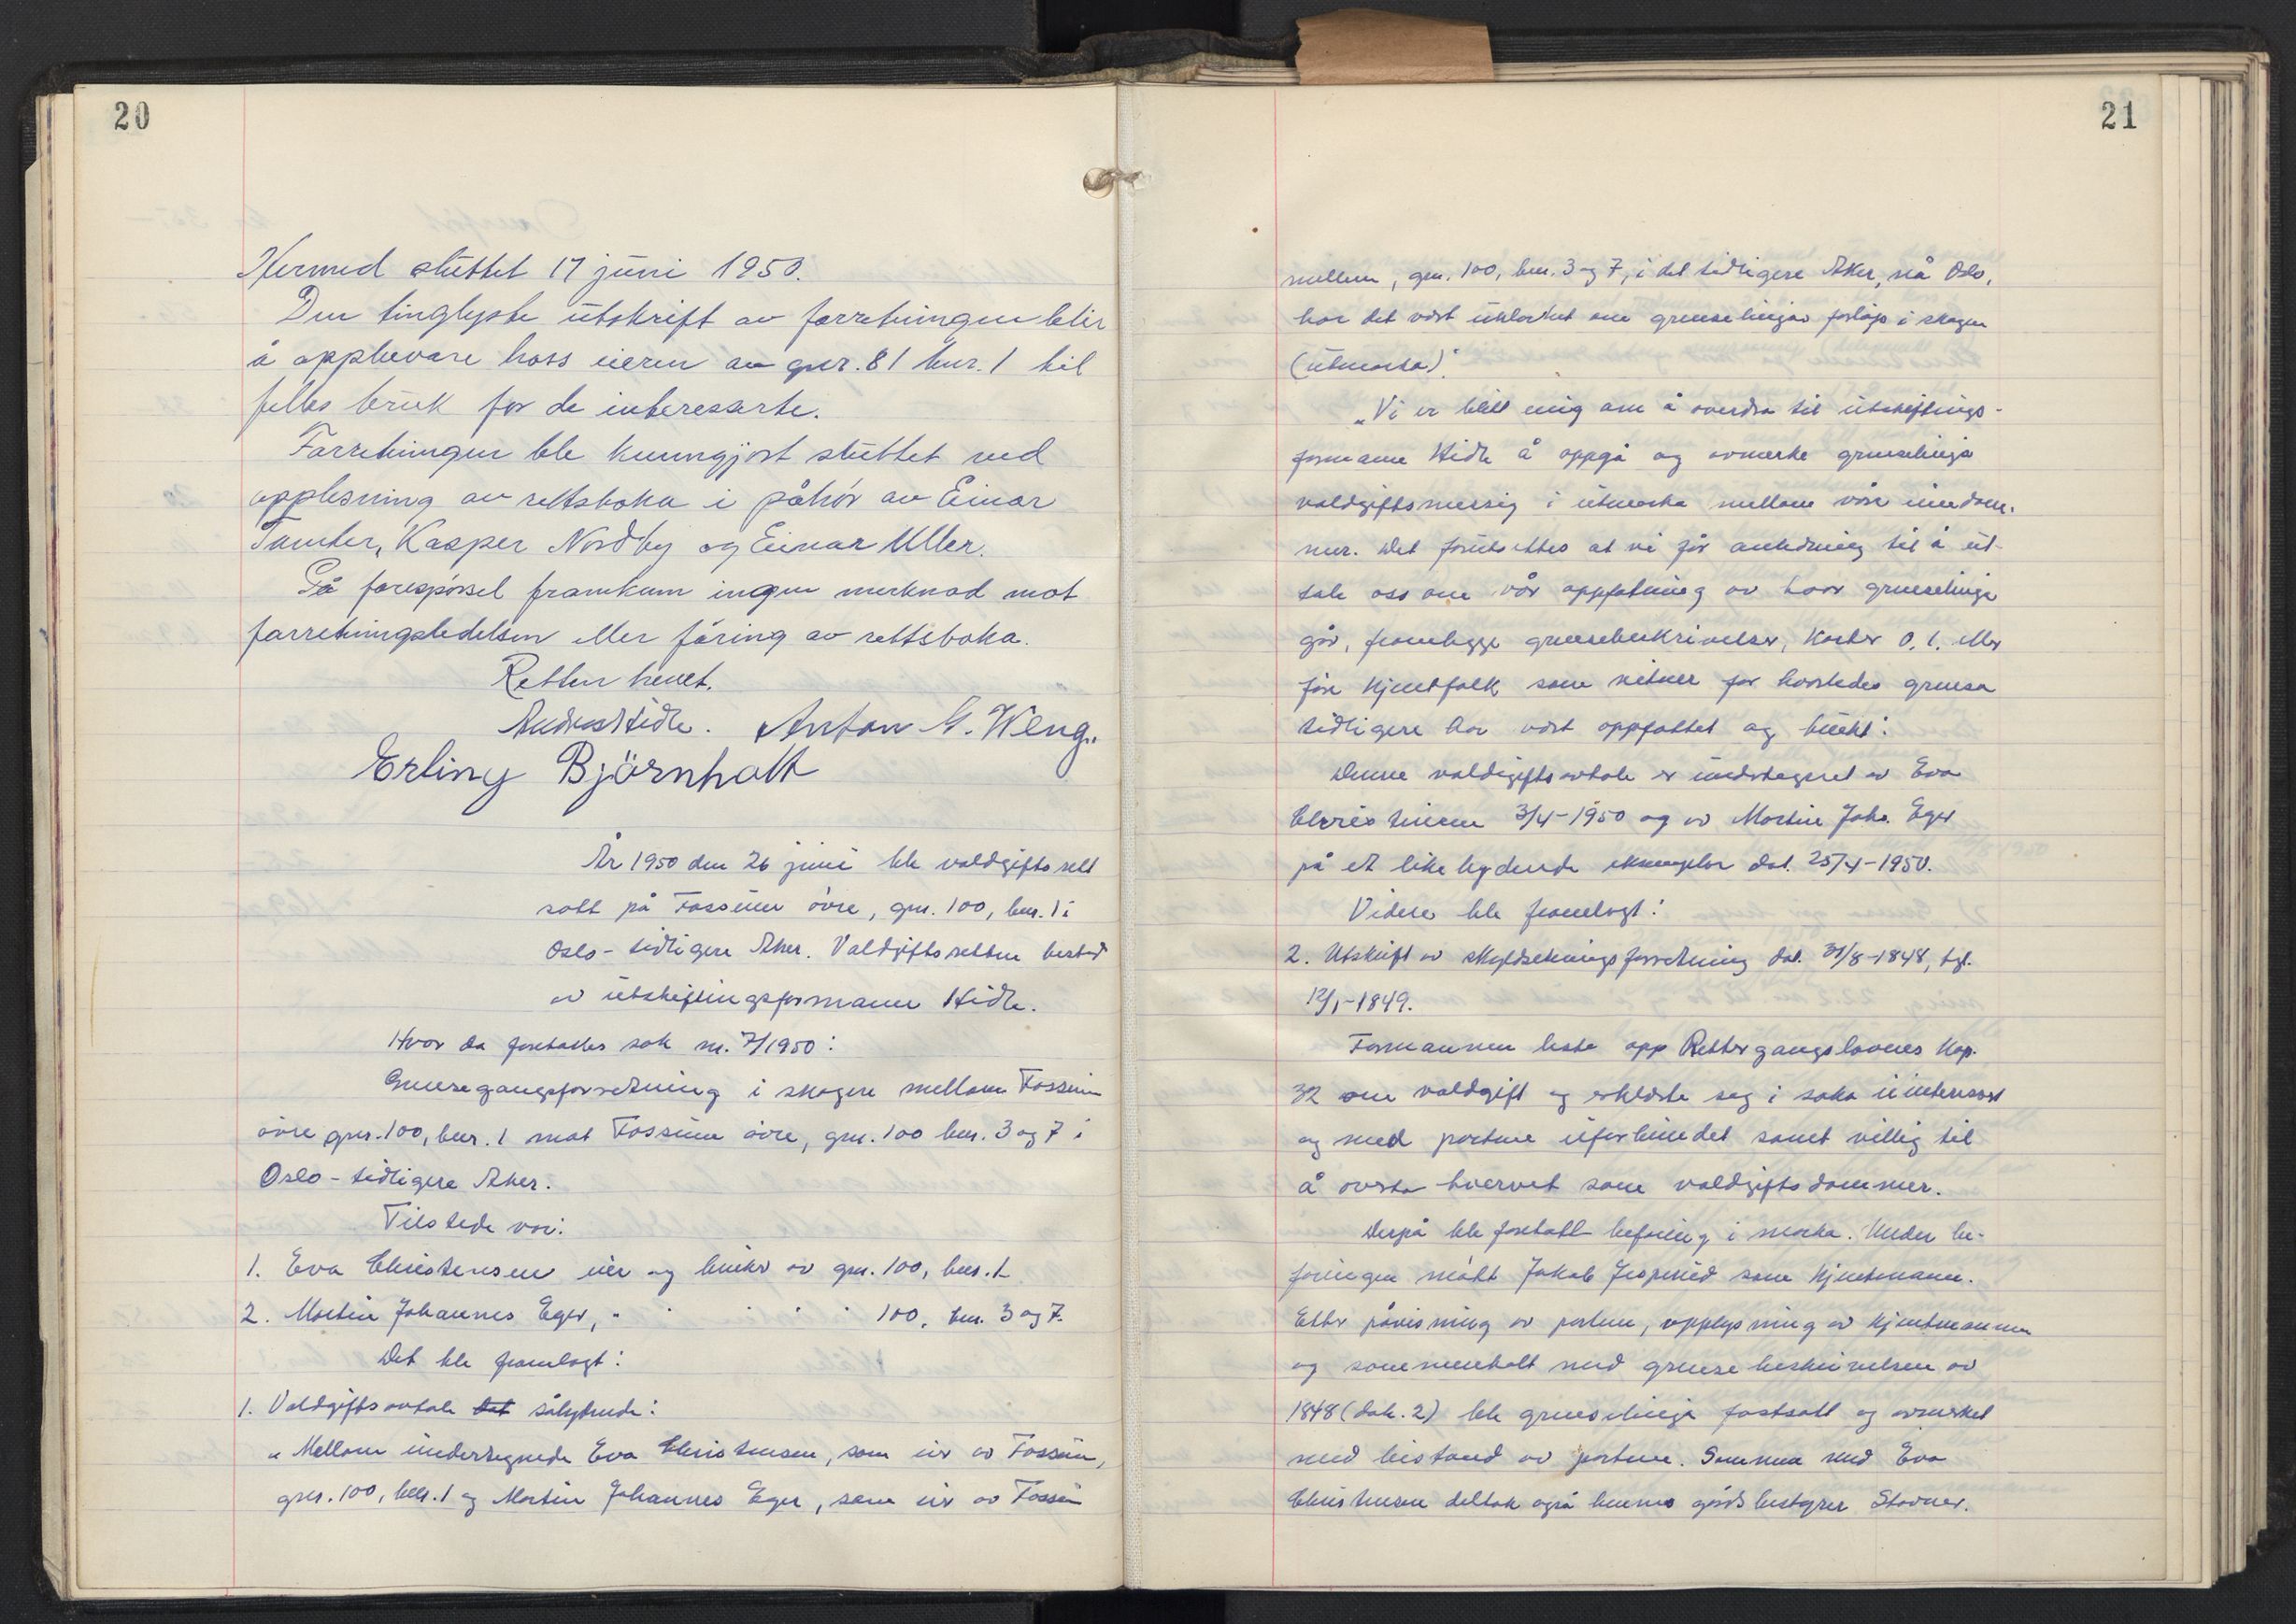 20
Hermed sluttet 17 juni 1950.
Den tinglyste utskrift av forretningen blir
å oppbevare hoss eieren av gnr. 81 bnr. 1 til
felles bruk for de interesserte.
Forretningen ble kunngjort sluttet ved
opplesning av rettsboka i påhør av Einar
Tømter, Kasper Nordby og Einar Uller.
På forespørsel framkom ingen merknad mot
forretningsledelsen eller føring av rettsboka.
Retten hevet.
Andreas Hidle. Anton G. Weng.
Erling Björnholt
År 1950 den 26 juni ble voldgiftsrett
satt på Fossum øvre, gnr. 100, bnr. 1 i
Oslo - tidligere Aker. Voldgiftsretten bestod
av utskiftingsformann Hidle.
Hvor da foretokes sak nr. 7/1950:
Grensegangsforretning i skogen mellom Fossum
øvre gnr. 100, bnr. 1 mot Fossum øvre, gnr. 100 bnr. 3 og 7 i
Oslo - tidligere Aker.
Tilstede var:
1. Eva Christensen eier og bruker av gnr. 100, bnr. 1
2. Martin Johannes Eger, " " " " " 100, bnr. 3 og 7.
Det ble framlagt:
1. Voldgiftsavtale dat sålydende:
"Mellom undertegnede Eva Christensen, som eier av Fossum,
gnr. 100, bnr. 1 og Martin Johannes Eger, som eier av Fossum
21
mellem, gnr. 100, bnr. 3 og 7, i det tidligere Aker, nå Oslo,
har det vært uklarhet om grenselinjas forløp i skogen
(utmarka)."
"Vi er blitt enig om å overdra til utskiftings-
formann Hidle å oppgå og avmerke grenselinja
voldgiftsmessig i utmarka mellom våre eiendom-
mer. Det forutsettes at vi får anledning til å ut-
tale oss om vår oppfatning av hvor grenselinja
går, framlegge grensebeskrivelser, karter o.l. eller
føre kjentfolk som vitner for hvorledes grensa
tidligere har vært oppfattet og brukt."
Denne voldgiftsavtale er undertegnet av Eva
Christensen 3/4-1950 og av Martin Johs. Eger
på et like lydende eksemplar dat. 25/4-1950.
Videre ble framlagt:
2. Utskrift av skyldsetningsforretning dat. 31/8-1848, tgl.
12/1-1849.
Formannen leste opp Rettergangslovens kap.
32 om voldgift og erklærte seg i saka uinteressert
og med partene uforbundet samt villig til
å overta hvervet som voldgiftsdommer.
Derpå ble foretatt befaring i marka. Under be-
faringen møtt Jakob Jesperud som kjentmann.
Etter påvisning av partene, opplysning av kjentmannen
og sammenholt med grensebeskrivelsen av
1848 (dok. 2) ble grenselinja fastsatt og avmerket
med bistand av partene. Sammen med Eva
Christensen deltok også hennes gårdsbestyrer Stovner.